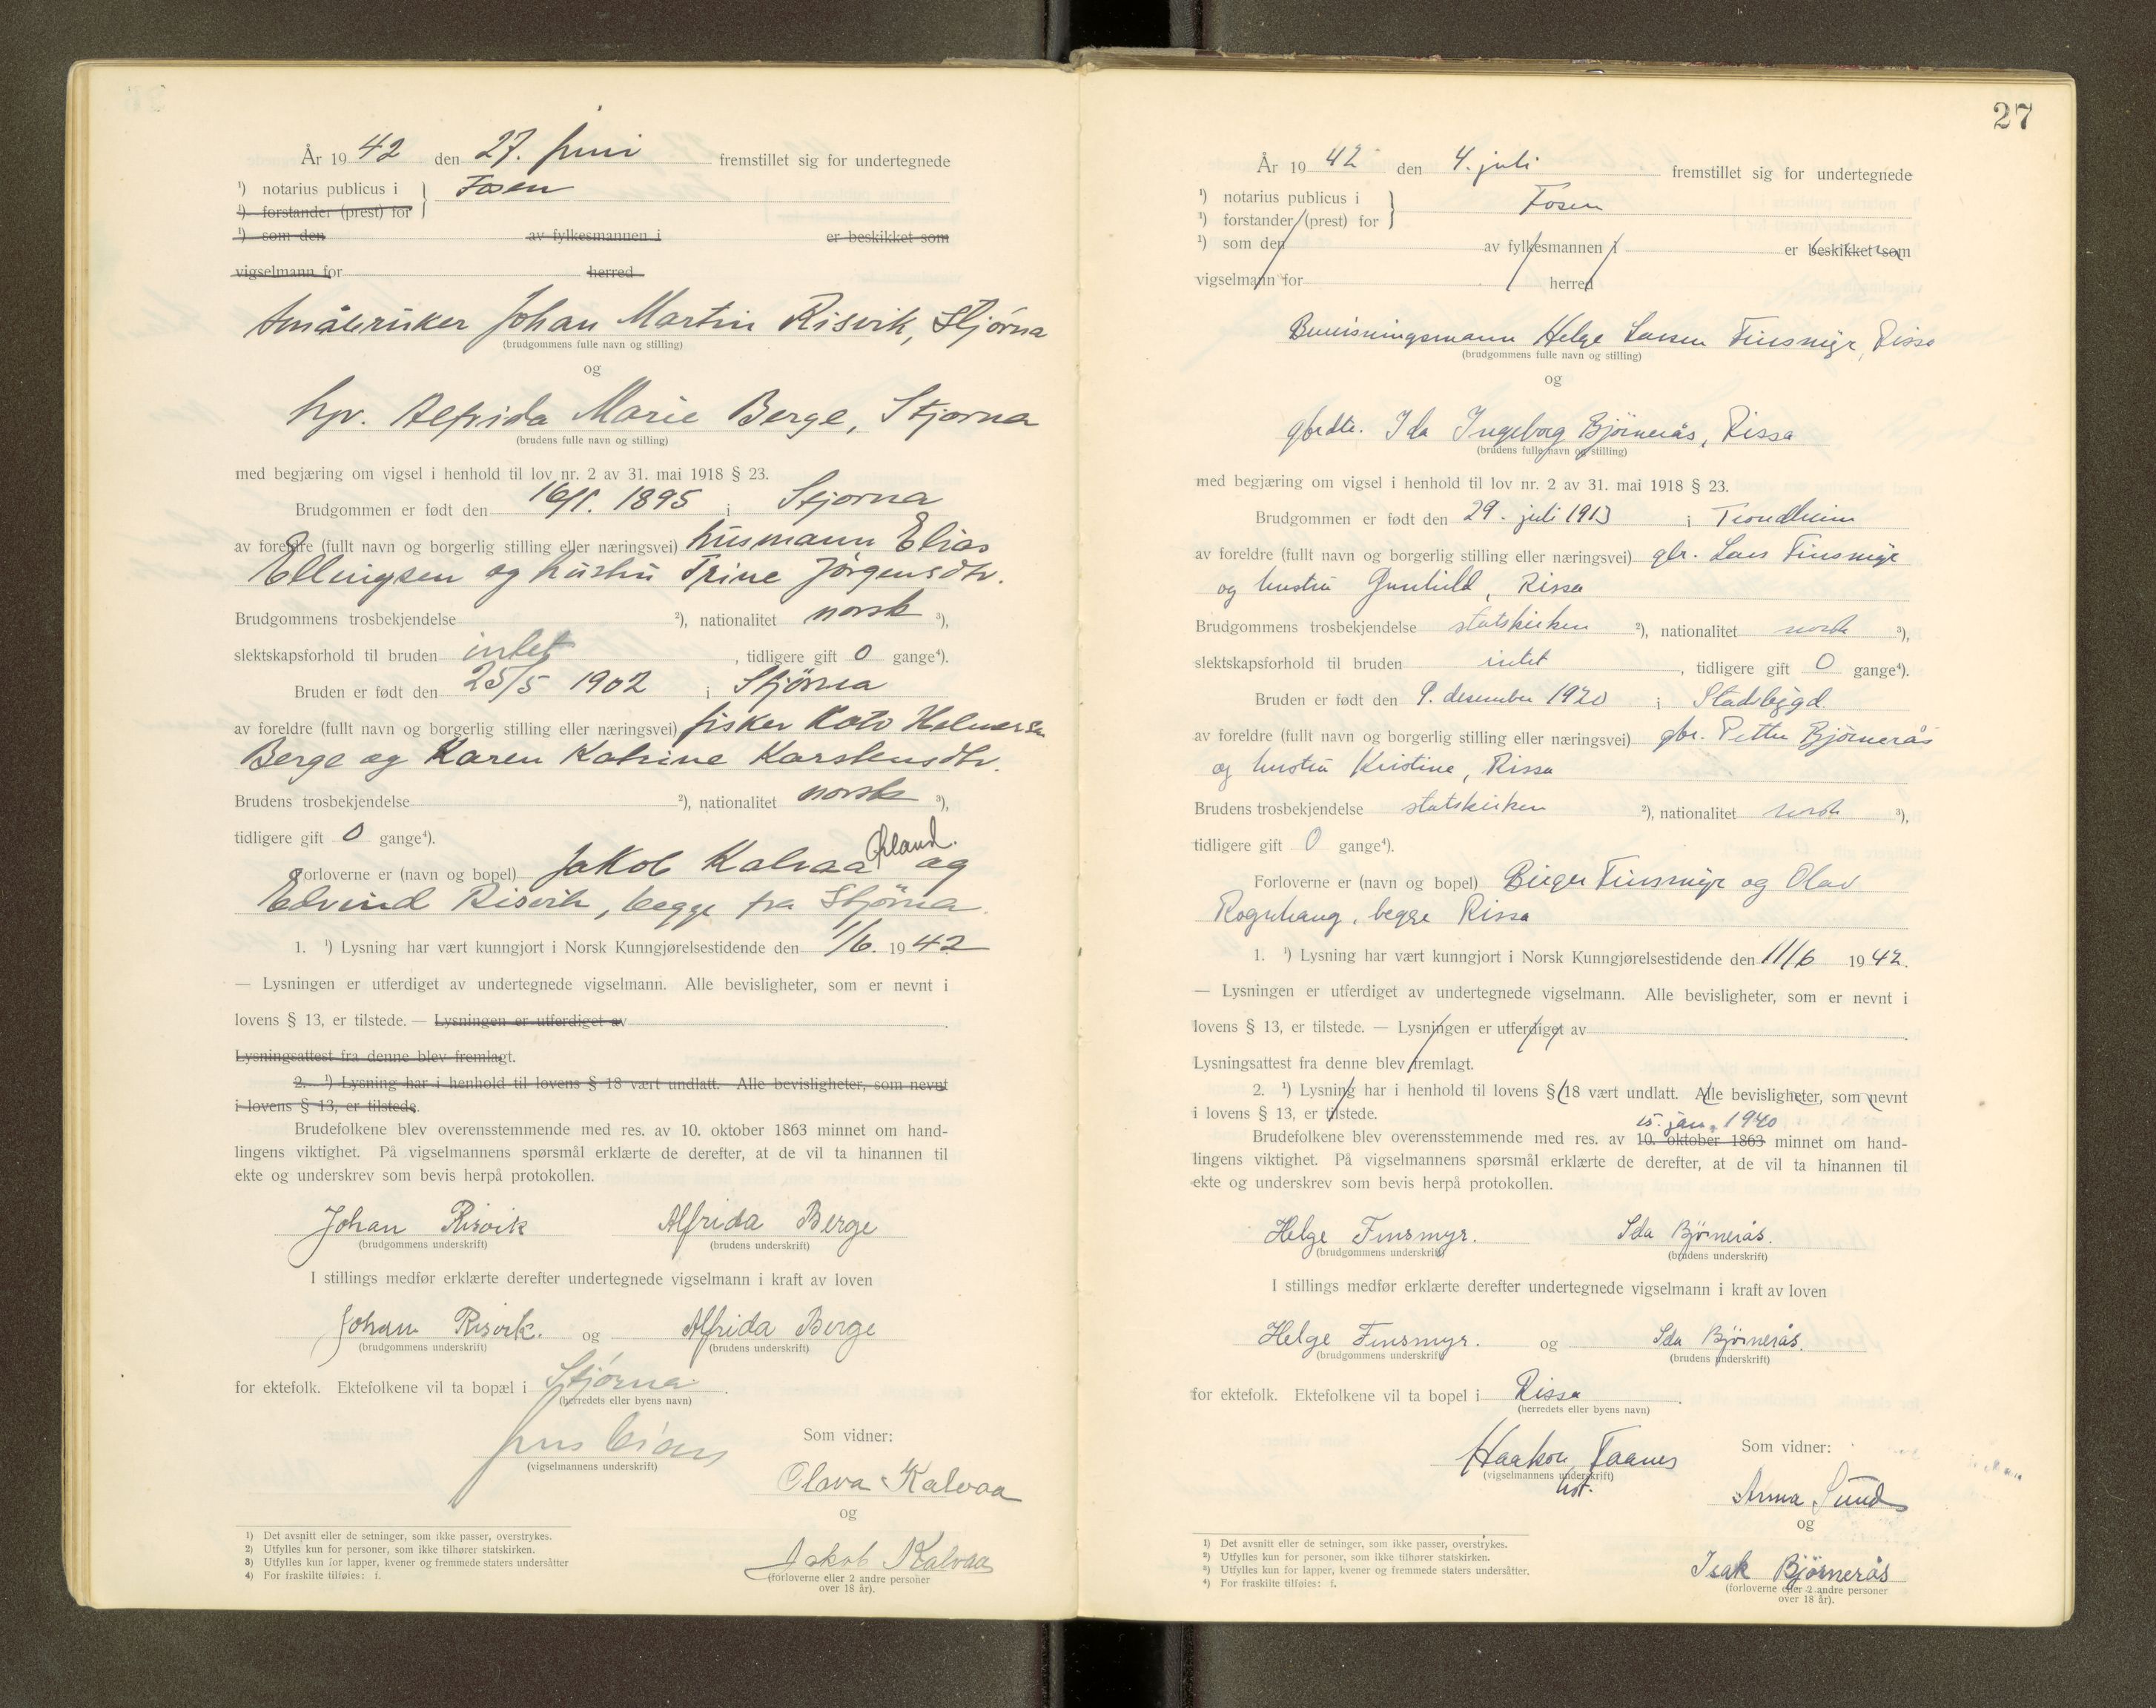 År 1942 den 27. juni fremstillet sig for undertegnede
1) notarius publicus i } Fosen
1) forstander (prest) for
1) som den av fylkesmannen i er beskikket som
vigselmann for herred
Småbruker Johan Martin Risvik, Stjørna
(brudgommens fulle navn og stilling)
og
hpr. Alfrida Marie Berge, Stjørna
(brudens fulle navn og stilling)
med begjæring om vigsel i henhold til lov nr. 2 av 31. mai 1918 § 23.
Brudgommen er født den 16/1. 1895 i Stjorna
av foreldre (fullt navn og borgerlig stilling eller næringsvei) husmann Elias
Ellingsen og hustru Trine Jørgensdtr.
Brudgommens trosbekjendelse 2), nationalitet norsk 3),
slektskapsforhold til bruden intet, tidligere gift 0 gange4).
Bruden er født den 25/5 1902 i Stjørna
av foreldre (fullt navn og borgerlig stilling eller næringsvei) fisker Helmersen
Berge og Karen Katrine Karstensdtr.
Brudens trosbekjendelse 2), nationalitet norsk 3),
tidligere gift 0 gange4).
Ørland.
Forloverne er (navn og bopel) Jakob Kalvaa og
Edvind Risvik, begge fra Stjørna.
1. 1) Lysning har vært kunngjort i Norsk Kunngjørelsestidende den 1/6. 1942
— Lysningen er utferdiget av undertegnede vigselmann. Alle bevisligheter, som er nevnt i
lovens § 13, er tilstede. — Lysningen er utferdiget av .
Lysningsattest fra denne blev fremlagt.
2. 1) Lysning har i henhold til lovens § 18 vært undlatt. Alle bevisligheter, som nevnt
i lovens § 13, er tilstede.
Brudefolkene blev overensstemmende med res. av 10. oktober 1863 minnet om hand-
lingens viktighet. På vigselmannens spørsmål erklærte de derefter, at de vil ta hinannen til
ekte og underskrev som bevis herpå protokollen.
Johan Risvik Alfrida Berge
(brudgommens underskrift) (brudens underskrift)
I stillings medfør erklærte derefter undertegnede vigselmann i kraft av loven
Johan Risvik. og Alfrida Berge
(brudgommens underskrift) (brudens underskrift)
for ektefolk. Ektefolkene vil ta bopæl i Stjørna.
(herredets eller byens navn)
(vigselmannens underskrift)
Som vidner:
Olava Kalvaa
og
Jakob Kalvaa
(forloverne eller 2 andre personer
over 18 år).
1) Det avsnitt eller de setninger, som ikke passer, overstrykes.
2) Utfylles kun for personer, som ikke tilhører statskirken.
3) Utfylles kun for lapper, kvener og fremmede staters undersåtter
4) For fraskilte tilføies: f.
27
År 1942 den 4. juli fremstillet sig for undertegnede
1) notarius publicus i } Fosen
1) forstander (prest) for
1) som den av fylkesmannen i er beskikket som
vigselmann for herred
Bureisningsmann Helge Larsen Finsmyr, Rissa
(brudgommens fulle navn og stilling)
og
gbrdtr. Ida Ingeborg Bjørnerås, Rissa
(brudens fulle navn og stilling)
med begjæring om vigsel i henhold til lov nr. 2 av 31. mai 1918 § 23.
Brudgommen er født den 29. juli 1913 i Trondheim
av foreldre (fullt navn og borgerlig stilling eller næringsvei) gbr. Lars Finsmyr
og hustru Gunhild, Rissa
Brudgommens trosbekjendelse statskirken 2), nationalitet norsk 3),
slektskapsforhold til bruden intet, tidligere gift 0 gange4).
Bruden er født den 9. desember 1920 i Stadsbygd
av foreldre (fullt navn og borgerlig stilling eller næringsvei) gbr. Petter Bjørnerås
og hustru Kristine, Rissa
Brudens trosbekjendelse statskirken 2), nationalitet norsk 3),
tidligere gift 0 gange4).
Forloverne er (navn og bopel) Birger Finsmyr og Olav
Rognhaug, begge Rissa
1. 1) Lysning har vært kunngjort i Norsk Kunngjørelsestidende den 11/6 1942.
— Lysningen er utferdiget av undertegnede vigselmann. Alle bevisligheter, som er nevnt i
lovens § 13, er tilstede. — Lysningen er utferdiget av .
Lysningsattest fra denne blev fremlagt.
2. 1) Lysning har i henhold til lovens § 18 vært undlatt. Alle bevisligheter, som nevnt
i lovens § 13, er tilstede.
15. jan. 1940
Brudefolkene blev overensstemmende med res. av 10. oktober 1863 minnet om hand-
lingens viktighet. På vigselmannens spørsmål erklærte de derefter, at de vil ta hinannen til
ekte og underskrev som bevis herpå protokollen.
Helge Finsmyr. Ida Bjørnerås.
(brudgommens underskrift) (brudens underskrift)
I stillings medfør erklærte derefter undertegnede vigselmann i kraft av loven
Helge Finsmyr. og Ida Bjørnerås.
(brudgommens underskrift) (brudens underskrift)
for ektefolk. Ektefolkene vil ta bopel i Rissa.
(herredets eller byens navn)
Haakon Faanes
(vigselmannens underskrift)
Som vidner:
Anna Sund
og
Isak Bjørnerås
(forloverne eller 2 andre personer
over 18 år).
1) Det avsnitt eller de setninger, som ikke passer, overstrykes.
2) Utfylles kun for personer, som ikke tilhører statskirken.
3) Utfylles kun for lapper, kvener og fremmede staters undersåtter.
4) For fraskilte tilføies: f.